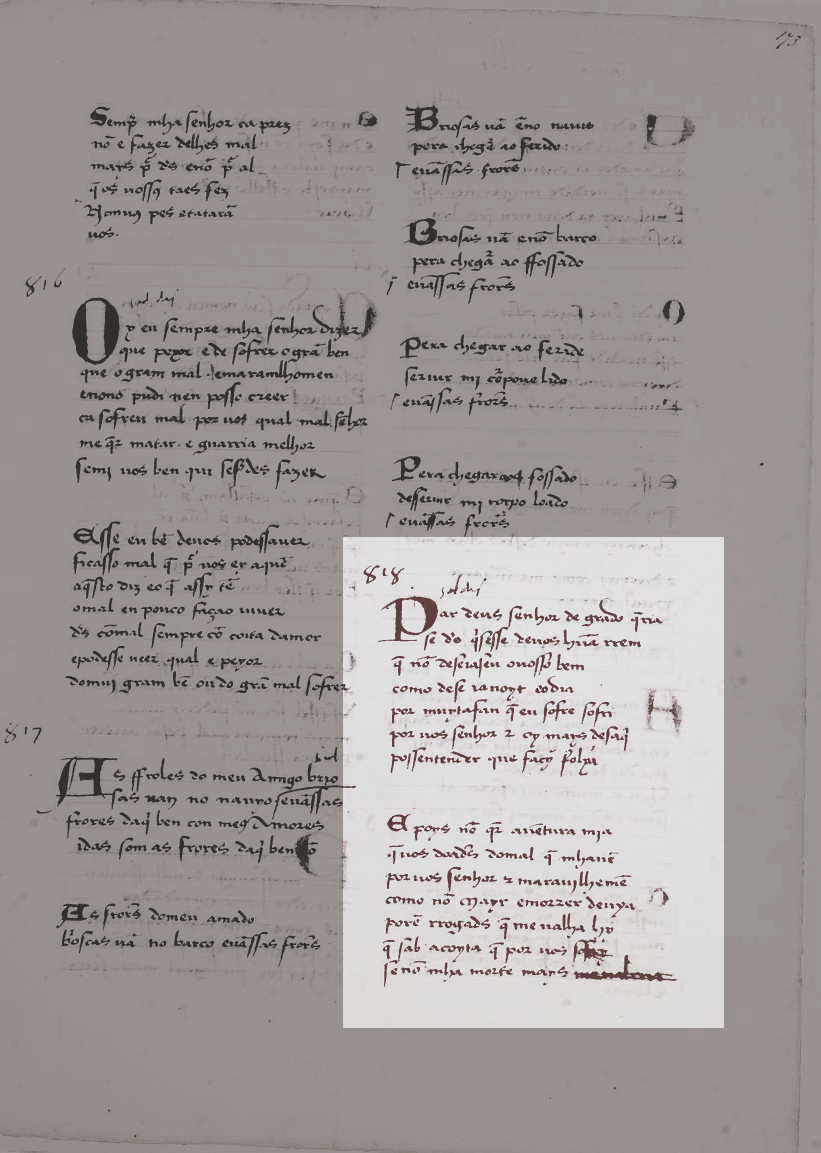 Semp̃ mha senhor ca prez
nō e fazer delhes mal
mays p̃ ds enō p̃ al
q̄ os uossꝯ taes fez
pes etatarā
uos.
816
O y eu sempre mha senhor dizer
que peyor e de sofrer o grā ben
que o gram mal. emarauilhomen
enono pudi nen posso creer
ca sofreu mal por uos qual mal sēhor
me q̄r matar. e guarria melhor
semi uos ben qui sesedes fazer
Esse eu bē deuos podessauer
ficasso mal q̄ p̃ uos ey aquē
aq̄sto diz eo q̄ assy tē
omal en pouco faça o uiuer
ds cōmal sempre cō coita damor
epodesse ueer qual e peyor
domui gram bē ou do grā mal sofrer
817
As ffroles do meu Amigo brio
sas uan no nauyo / euāssas
frores daq̄ ben con meꝯ Amores
idas som as frores daq̄ ben cō
As frorē̄s domeu amado
b'oscas uā no barco euāssas frors
Briosas uā ēno nauio
pora chegā ao ferido
euāssas frors
Briosas uā enō barco
pera chegā ao ffossado
euāssas frors
Pera chegar ao feride
seruir mi corpoue lido
euāssas frors
Pera chegar aos fossado
desseruir mi corpo loado
euāssas frors
818
Par deus senhor de grado q̄ria
se ds q̄sesse deuos hūa rrem
q̄ nō deseiaseu ouosso bem
como dese ia noyt eodia
por muyta fan q̄ eu sofre sofri
por uos senhor ⁊ oy mays desaq̄
poissentender que facy folya
E poys nō q̄r auētura mia
q̄ uos doads domal q̄ mhauē
por uos senhor ⁊ marauilhemē
como nō moyr emorrer deuya
porē rrogads q̄ me ualha hy
q̄ sab acoyta q̄ por uos
se nō mha morte mays